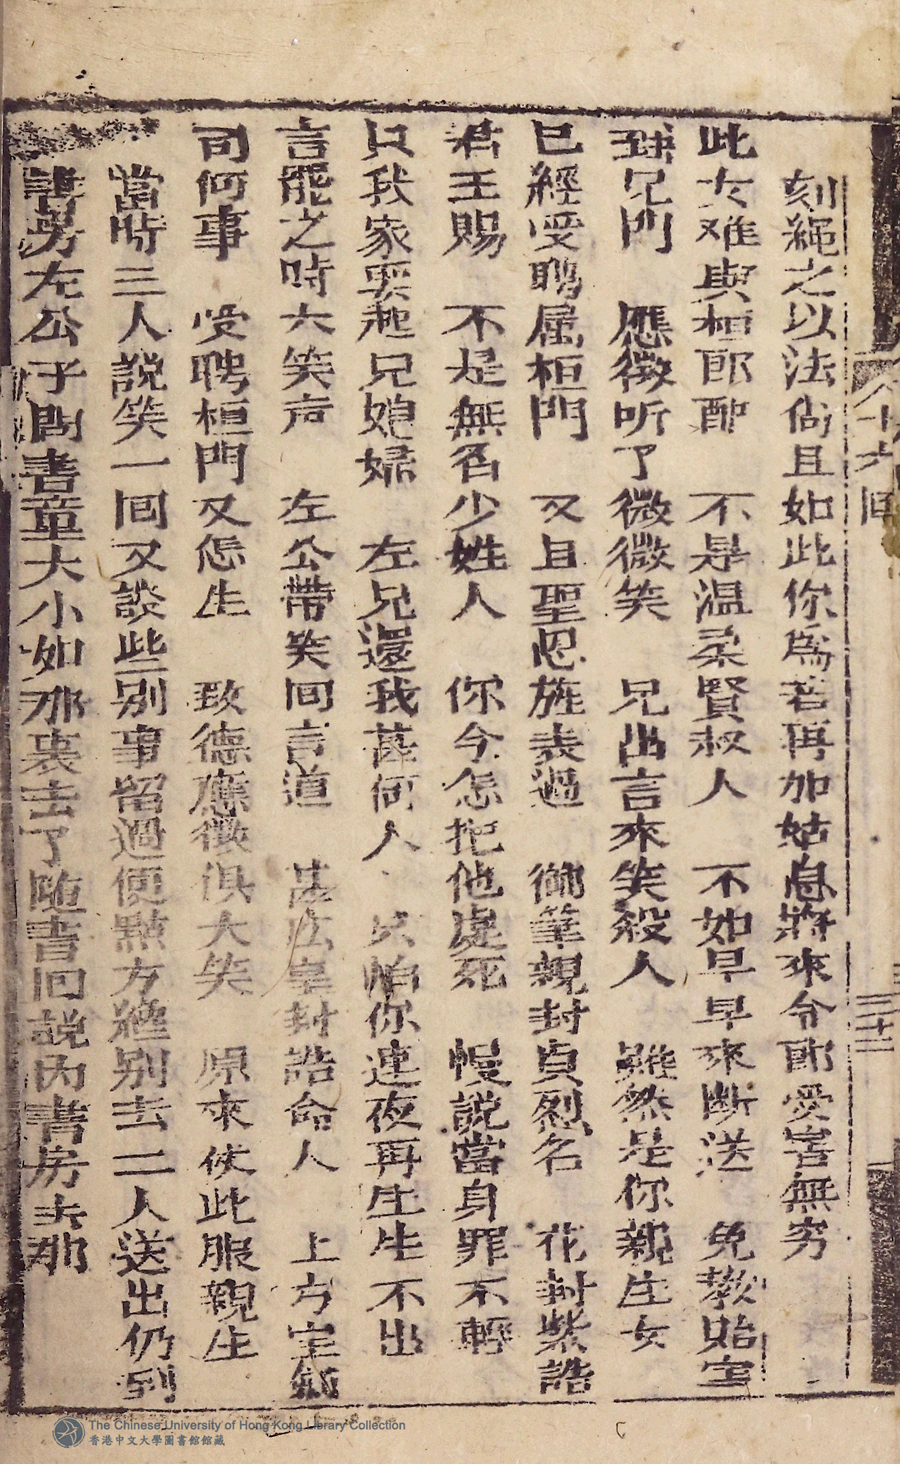 刻繩之以法尚且如此你爲若再加姑息將來令郎受害無穷
此女难與桓郎配　不是温柔賢叔人　不如早早來断送　免教貽害
到兄門　應徵听了微微笑　兄出言來笑殺人　雖然是你親生女
已經受聘属桓門　又且聖恩旌表過　御筆親封貞烈名　花封紫誥
君王賜　不是無名少姓人　你今怎把他處死　慢說當身罪不輕
只我家要起兄媳婦　左兄還我甚何人　只怕你連夜再生生不出
言罷之時六笑声　左公帶笑回言道　甚広皇封誥命人　上方宝劍
司何事　受聘桓門又怎生　致德應徵俱大笑　原來使此服親生
當時三人說笑一回又談些別事留過便點方纔别去二人送出仍到
書房左公子問書童大小如那裏去了随書回說內書房去那
八十六回
三十二
The Chinese University of Hong Kong Library Collection
香港中文大學圖書館館藏